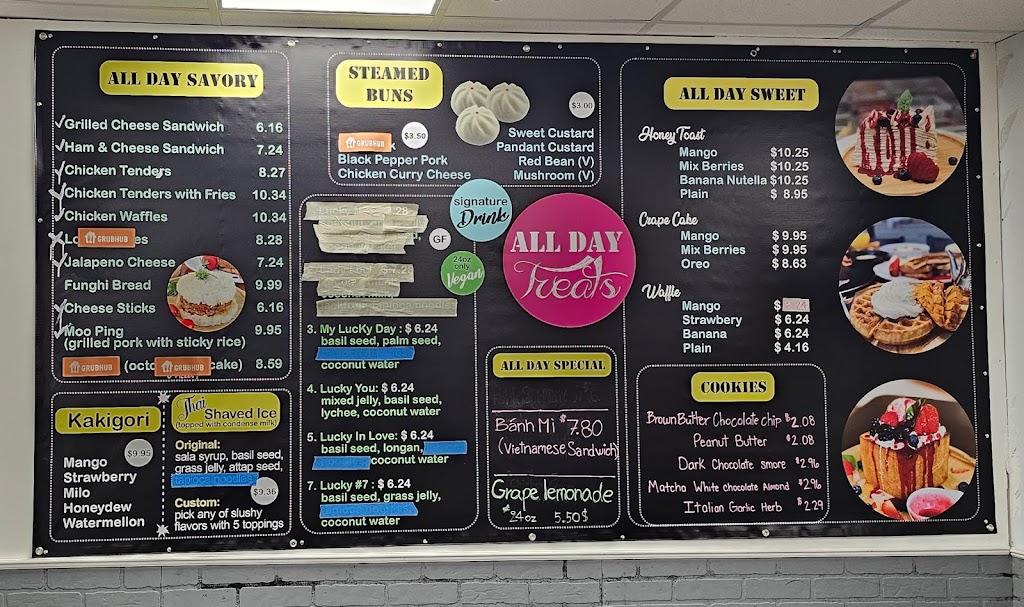 ALL DAY SAVORY
Grilled Cheese Sandwich 6.16
Ham & Cheese Sandwich 7.24
Chicken Tenders 8.27
Chicken Tenders with Fries 10.34
Chicken Waffles 10.34
GRUBHUB 8.28
Jalapeno Cheese 7.24
Funghi Bread 9.99
Cheese Sticks 6.16
Moo Ping 9.95
(grilled pork with sticky rice)
GRUBHUB GRUBHUB cake) 8.59
Kakigori
$9.95
Mango
Strawberry
Milo
Honeydew
Watermellon
Thai Shaved Ice
(topped with condense milk)
Original:
sala syrup, basil seed,
grass jelly, attap seed,
tapioca noodles
$9.36
Custom:
pick any of slushy
flavors with 5 toppings
STEAMED
BUNS
$3.50
GRUBHUB
Black Pepper Pork
Chicken Curry Cheese
$3.00
Sweet Custard
Pandant Custard
Red Bean (V)
Mushroom (V)
signature
Drink
GF
24oz
only
Vegan
3. My LucKy Day : $ 6.24
basil seed, palm seed,
coconut water
4. Lucky You: $ 6.24
mixed jelly, basil seed,
lychee, coconut water
5. Lucky In Love: $ 6.24
basil seed, longan,
coconut water
7. Lucky #7 : $ 6.24
basil seed, grass jelly,
coconut water
ALL DAY
Treats
ALL DAY SPECIAL
Bánh Mì $7.80
(Vietnamese Sandwich)
Grape lemonade
*24oz 5.50$
ALL DAY SWEET
Honey Toast
Mango $10.25
Mix Berries $10.25
Banana Nutella $10.25
Plain $ 8.95
Crape Cake
Mango $ 9.95
Mix Berries $ 9.95
Oreo $ 8.63
Waffle
Mango
Strawbery $ 6.24
Banana $ 6.24
Plain $ 4.16
COOKIES
Brown Butter Chocolate chip $2.08
Peanut Butter $2.08
Dark Chocolate smore $2.96
Matcha White chocolate Almond $2.96
Italian Garlic Herb $2.29